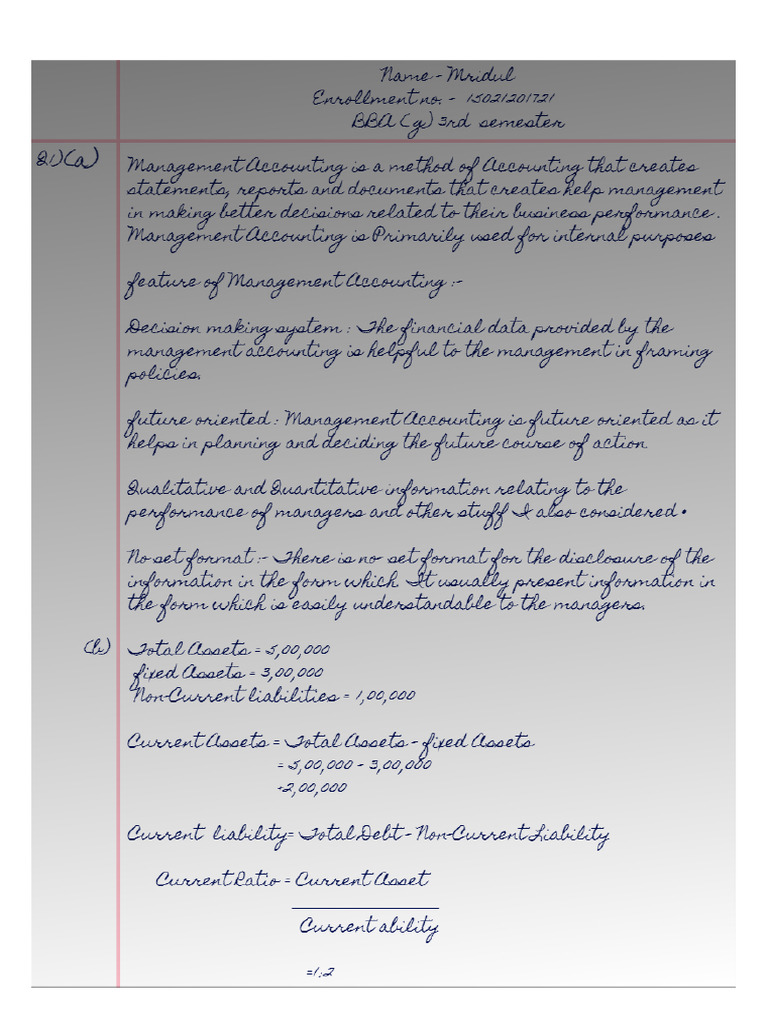 Name - Mridul
Enrollment no. - 15021201721
BBA (g) 3rd semester
Q1)(a)
Management Accounting is a method of Accounting that creates
statements, reports and documents that creates help management
in making better decisions related to their business performance.
Management Accounting is Primarily used for internal purposes
feature of Management Accounting :-
Decision making system : The financial data provided by the
management accounting is helpful to the management in framing
policies.
future oriented : Management Accounting is future oriented as it
helps in planning and deciding the future course of action
Qualitative and Quantitative information relating to the
performance of managers and other stuff I also considered.
No set format :- There is no set format for the disclosure of the
information in the form which It usually present information in
the form which is easily understandable to the managers.
(b) Total Assets = 5,00,000
fixed Assets = 3,00,000
Non-Current liabilities = 1,00,000
Current Assets = Total Assets - fixed Assets
= 5,00,000 - 3,00,000
-2,00,000
Current liability = Total Debt - Non-Current Liability
Current Ratio = Current Asset
Current ability
=1:2